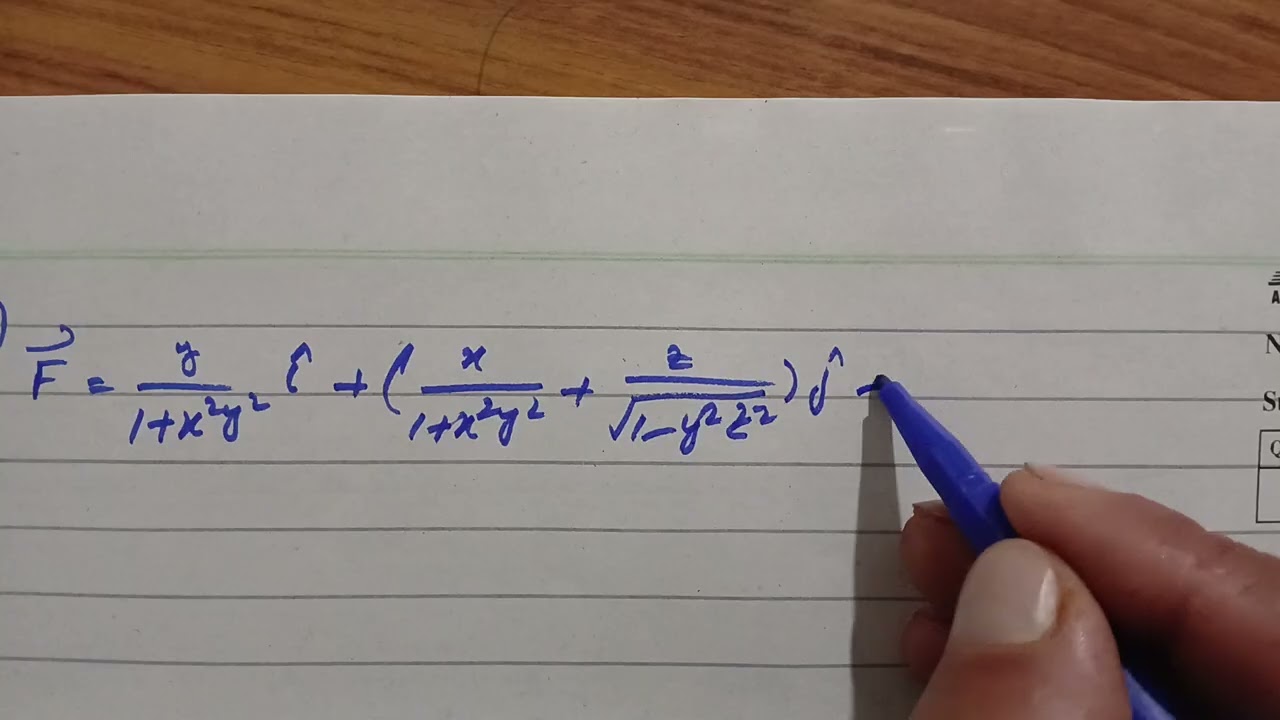 ) F⃗ = y/(1+x²y²) î + (x/(1+x²y²) + z/√(1-y²z²)) ĵ +
A
N
Q